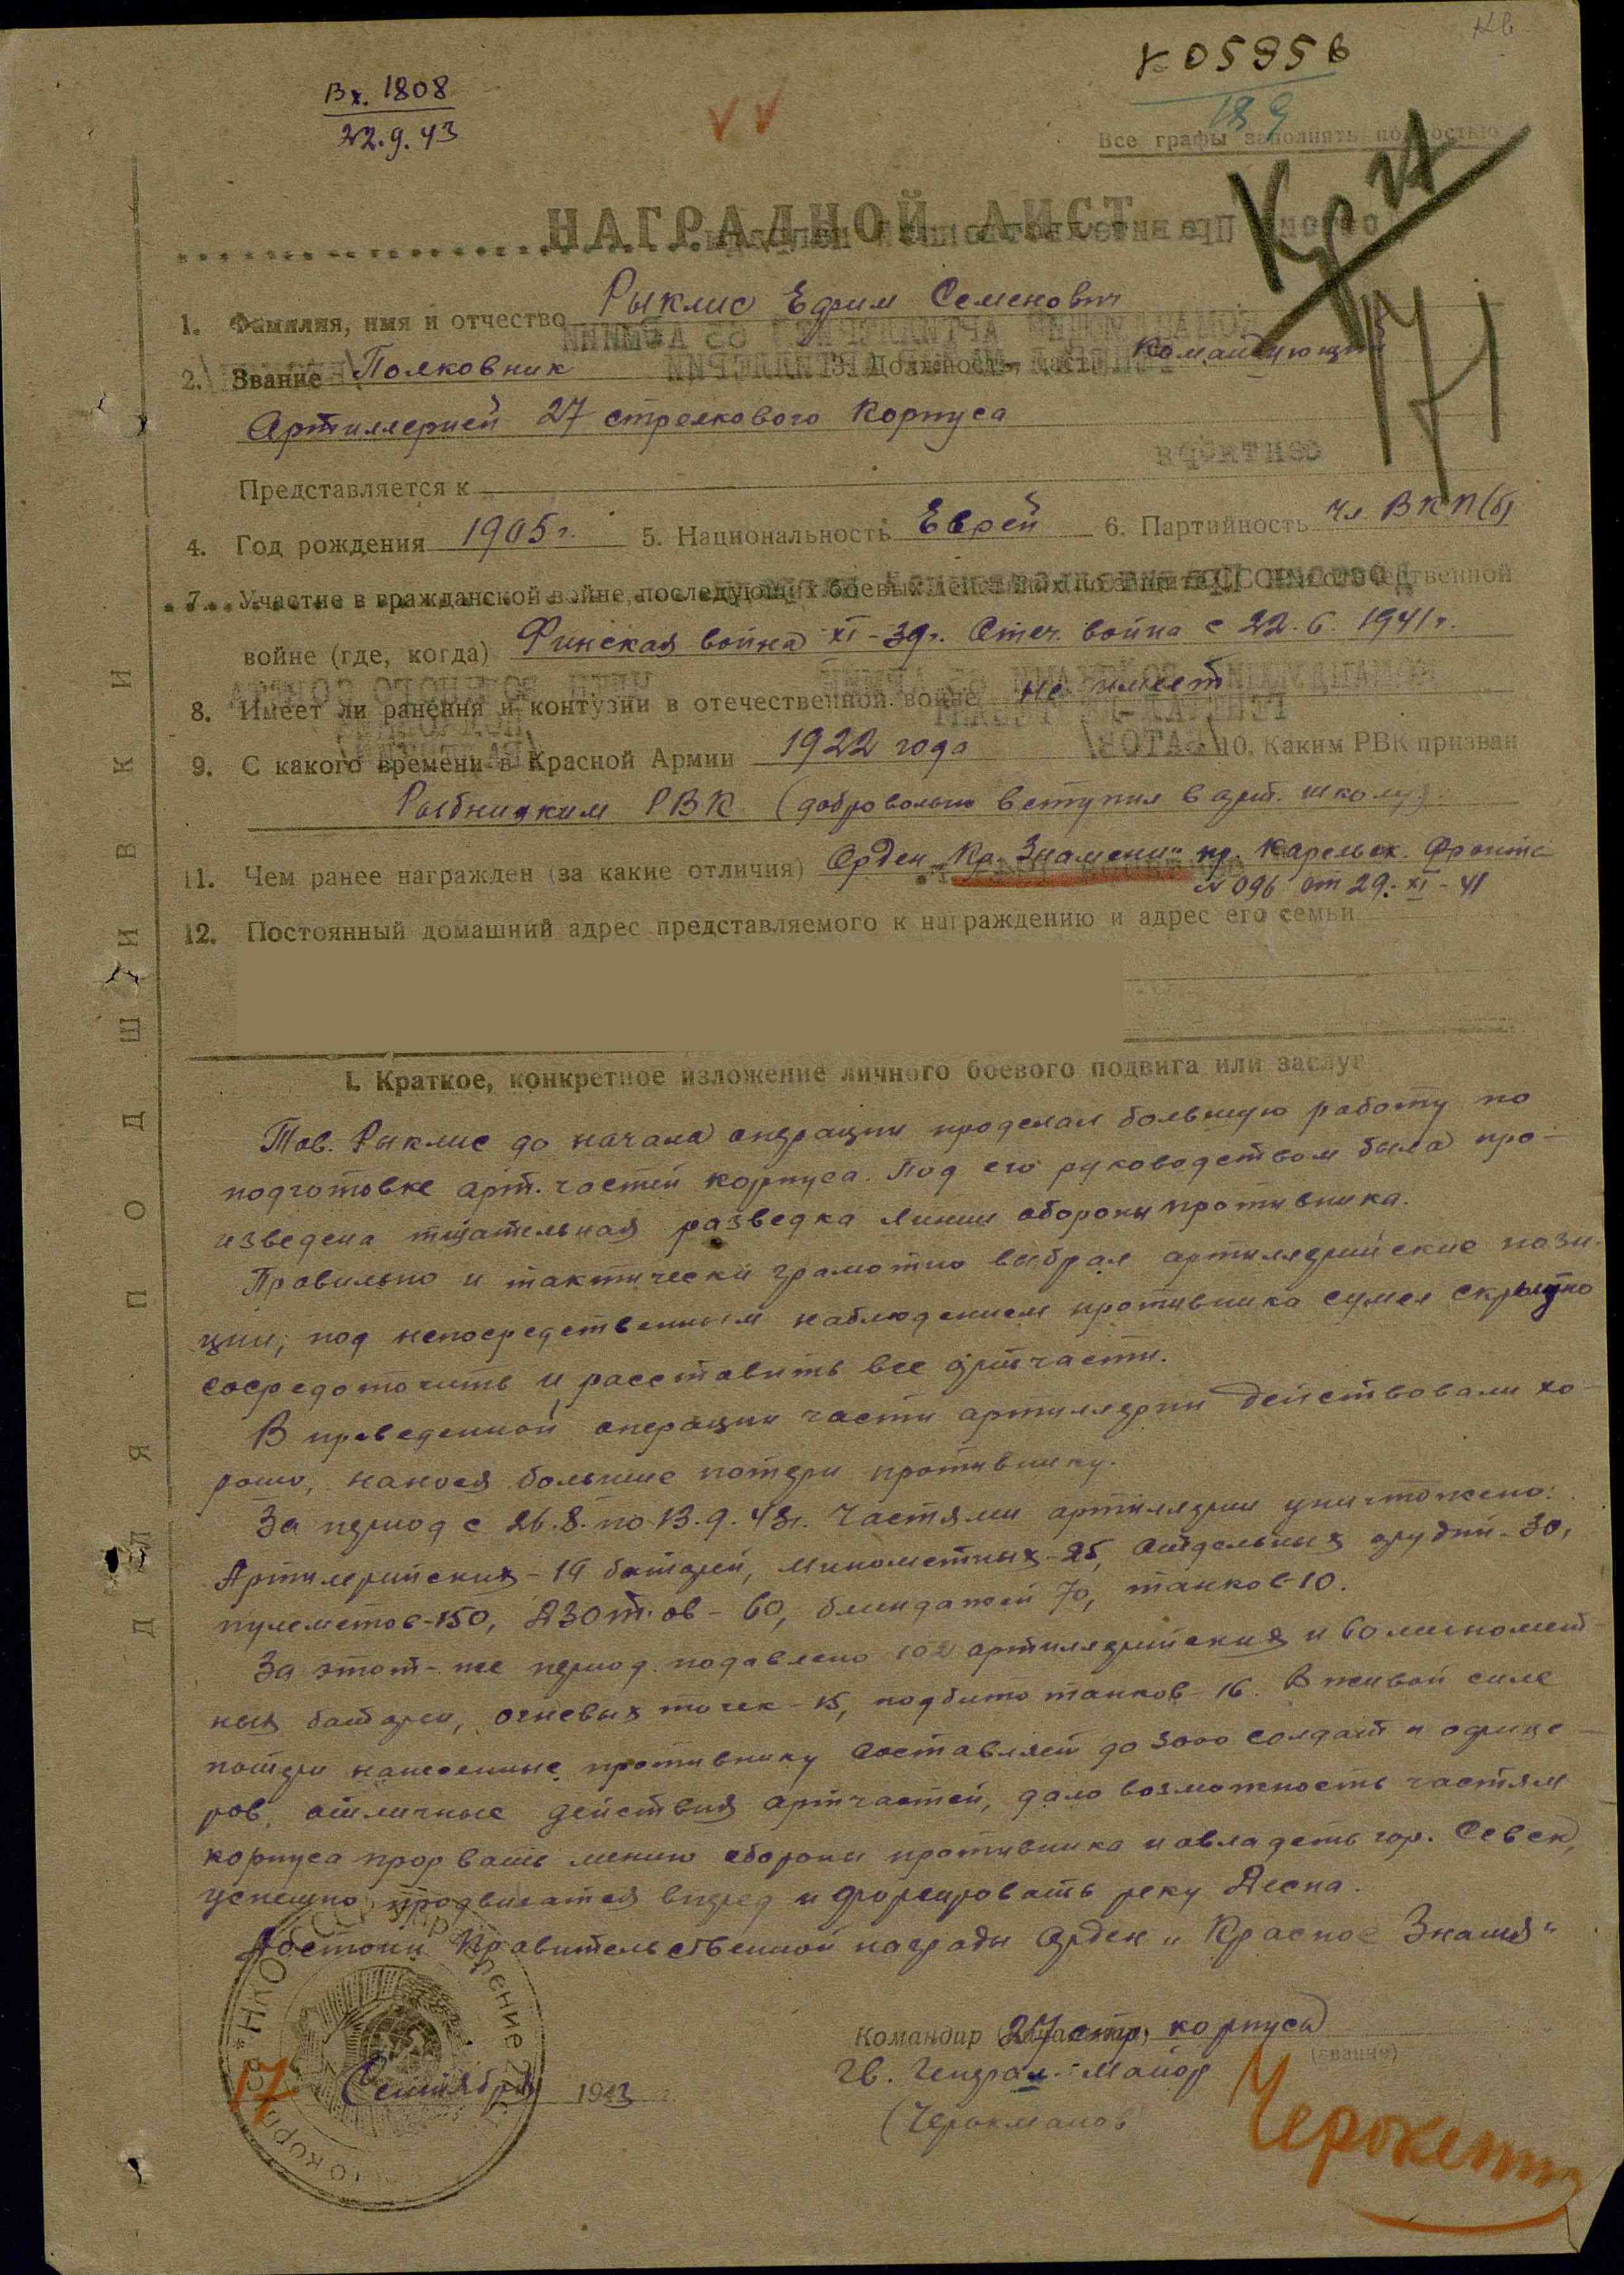 Вх. 1808
22.9.43
Все графы заполнять полностью
НАГРАДНОЙ ЛИСТ
1. Фамилия, имя и отчество Рыклис Ефим Семенович
2. Звание Полковник 3. Должность, часть Командующий
Артиллерией 27 стрелкового Корпуса
Представляется к
4. Год рождения 1905 г. 5. Национальность Еврей 6. Партийность чл ВКП(б)
7. Участие в гражданской войне, последующих боевых действиях по защите СССР и отечественной
войне (где, когда) Финская война XI-39г. Отеч. война с 22.6.1941г.
8. Имеет ли ранения и контузии в отечественной войне не имеет
9. С какого времени в Красной Армии 1922 года 10. Каким РВК призван
Рыбницким РВК (добровольно вступил в арт. школу)
11. Чем ранее награжден (за какие отличия) Орден „Кр. Знамени" пр. Карельск. Фронта
№ 096 от 29.XI-41
12. Постоянный домашний адрес представляемого к награждению и адрес его семьи
I. Краткое, конкретное изложение личного боевого подвига или заслуг
Тов. Рыклис до начала операции проделал большую работу по
подготовке арт. частей корпуса. Под его руководством была про-
изведена тщательная разведка линии обороны противника.
Правильно и тактически грамотно выбрал артиллерийские пози-
ции, под непосредственным наблюдением противника сумел скрытно
сосредоточить и расставить все артчасти.
В проведенной операции части артиллерии действовали хо-
рошо, нанося большие потери противнику.
За период с 26.8. по 13.9.43г. Частями артиллерии уничтожено:
Артилерийских - 19 батарей, минометных - 25, отдельных орудий - 30,
пулеметов - 150, ДЗОТ.ов - 60, блиндажей 70, танков - 10.
За этот-же период подавлено 102 артиллерийских и 60 миномет-
ных батарей, огневых точек - 15, подбито танков - 16. В живой силе
потери нанесенные противнику составляет до 3000 солдат и офице-
ров, отличные действия артчастей, дало возможность частям
корпуса прорвать линию обороны противника и овладеть гор. Севск,
успешно продвигатся вперед и форсировать реку Десна.
Достоин Правительственной награды Орден „Красное Знамя"
Командир 27 стр. корпуса
(звание)
Гв. Генерал-Майор
(Черокманов
17 Сентября 1943
ДЛЯ ПОДШИВКИ